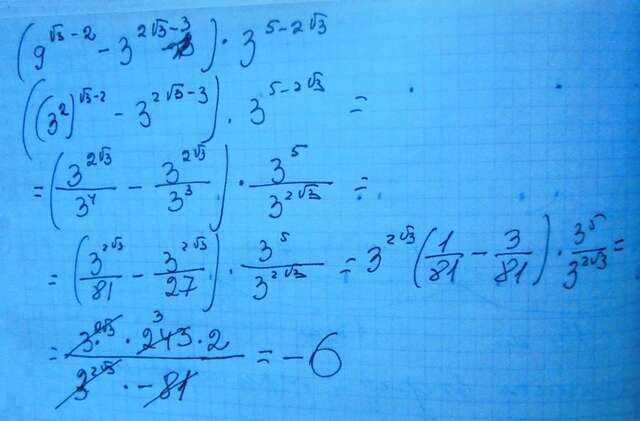 (9^{√3-2} - 3^{2√3-3}) · 3^{5-2√3}
((3²)^{√3-2} - 3^{2√3-3}) · 3^{5-2√3} =
= (3^{2√3}/3⁴ - 3^{2√3}/3³) · 3⁵/3^{2√3} =
= (3^{2√3}/81 - 3^{2√3}/27) · 3⁵/3^{2√3} = 3^{2√3}(1/81 - 3/81) · 3⁵/3^{2√3} =
= 3^{2√3} · 243 3 · 2/3^{2√3} · -81 = -6